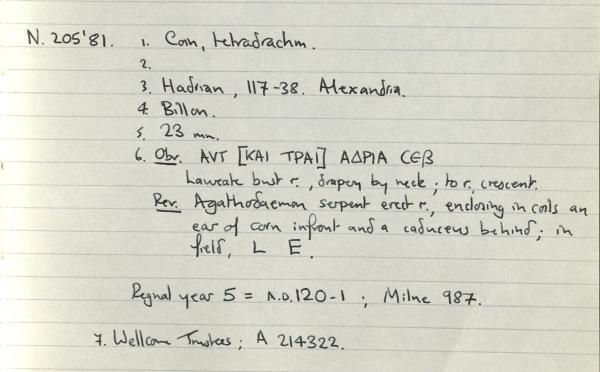 N. 205'81. 1. Coin, tetradrachm.
2.
3. Hadrian, 117-38. Alexandria.
4. Billon.
5. 23 mm.
6. Obv. ΑVΤ [ΚΑΙ ΤΡΑΙ] ΑΔΡΙΑ ϹЄΒ
Laureate bust r., drapery by neck; to r, crescent.
Rev. Agathodaemon serpent erect r., enclosing in coils an
ear of corn infront and a caduceus behind; in
field, L E.
Regnal year 5 = A.D. 120-1; Milne 987.
7. Wellcome Trustees; A 214322.